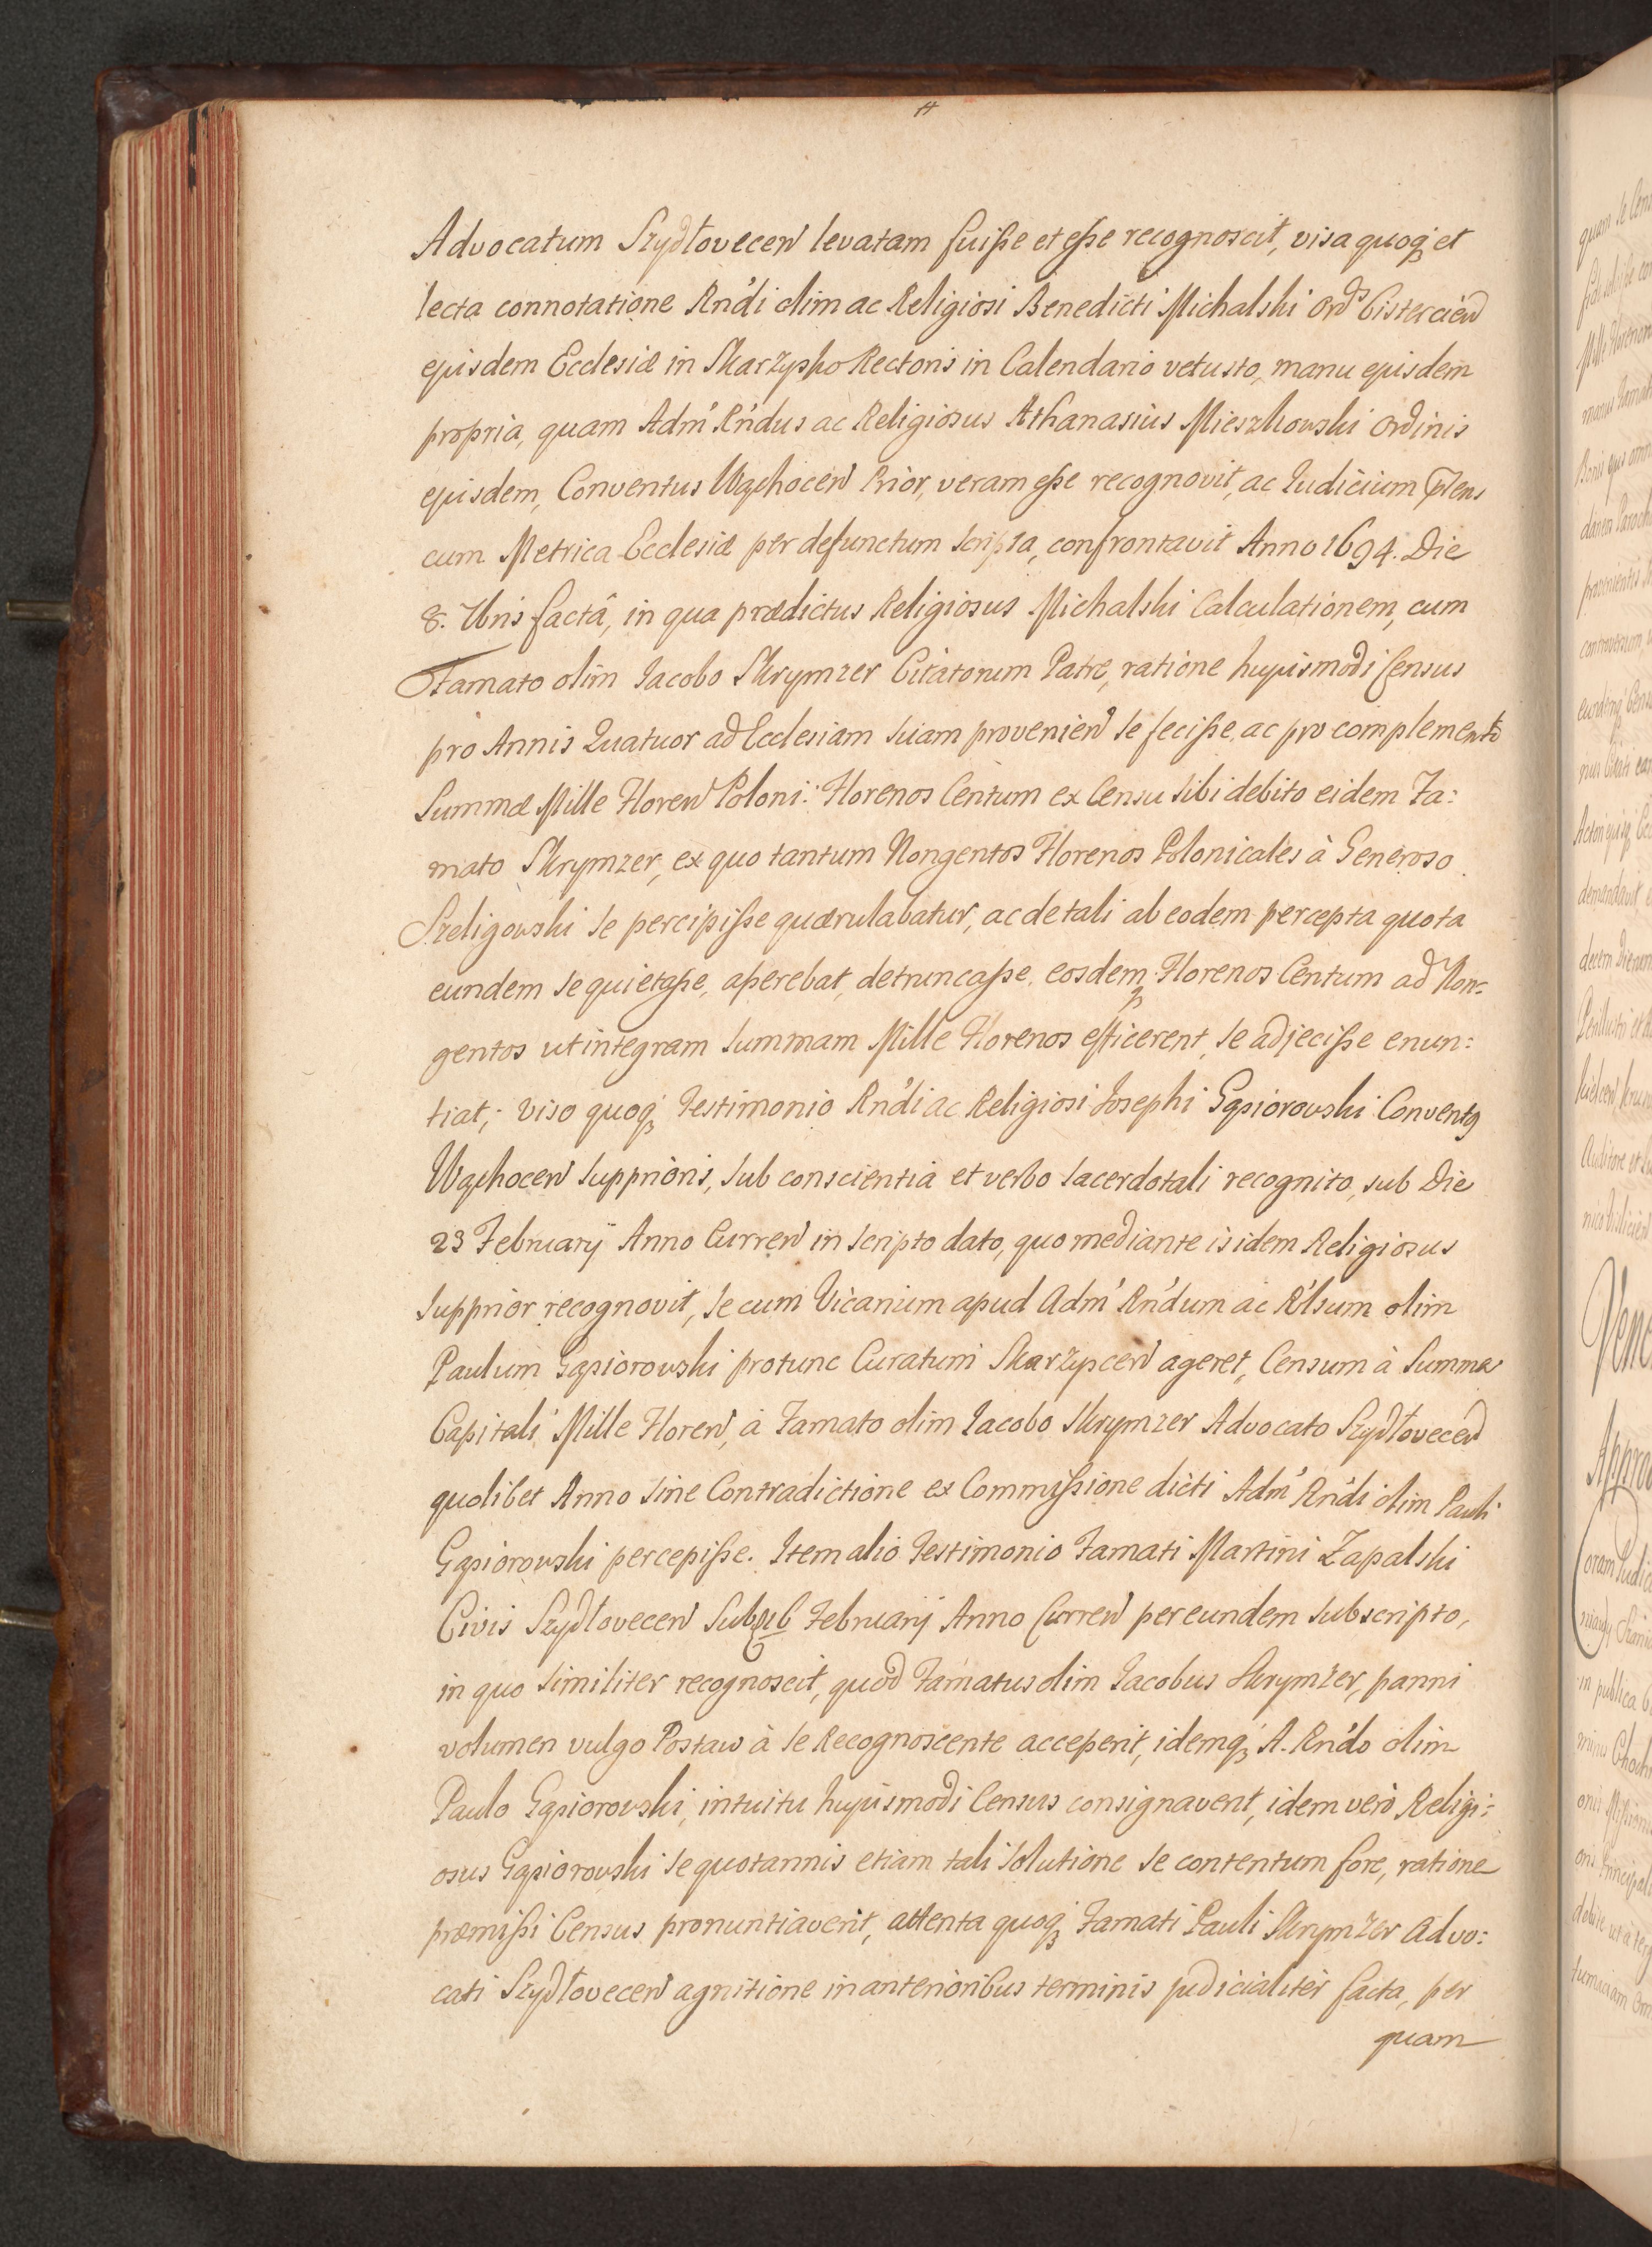 Advocatum Szydłoveceń levatam fuiße et eße recognoscit, visa quoq́ et
lecta connotatione Rńdi olim ac Religiosi Benedicti Michalski Ord̃s Cistercień
ejusdem Ecclesiæ in Skarzysko Rectoris in Calendario vetusto, manu ejusdem
propria, quam Adm̃ Rńdus ac Religiosus Athanasius Mieszkowski Ordinis
ejusdem, Conventus Wąchoceń Prior, veram eße recognovit, ac Judicium p̃rens
cum Metrica Ecclesiæ per defunctum scripta, confrontavit Anno 1694. Die
8. Xbris factâ, in qua prædictus Religiosus Michalski Calculationem, cum
Famato olim Jacobo Skrymzer Citatorum Patre, ratione hujusmodi Census
pro Annis Quatuor ad Ecclesiam suam provenień se feciße, ac pro complemento
Summæ Mille Floreń Poloni: Florenos Centum ex Censu sibi debito eidem Fa:
mato Skrymzer, ex quo tantum Nongentos Florenos Polonicales à Generoso
Szeligowski se percipiße quærulabatur, ac de tali ab eodem percepta quota
eundem se quietaße, aßerebat, detruncaße, eosdemq́ Florenos Centum ad Non:
gentos ut integram Summam Mille Florenos efficerent, se adjeciße enun:
tiat; viso quoq́ Testimonio Rńdi ac Religiosi Josephi Gąsiorowski Conventꝰ
Wąchoceń Suppriòris, sub conscientia et verbo Sacerdotali recognito, sub Die
23 Februarÿ Anno Curreń in Scripto dato, quo mediante is idem Religiosus
Supprior recognovit, se cum Vicarium apud Adm̃ Rńdum ac R̃lsum olim
Paulum Gąsiorowski protunc Curatum Skarzysceń ageret, Censum à Summa
Capitali Mille Floreń, à Famato olim Jacobo Skrymzer Advocato Szydłoveceń
quolibet Anno sine Contradictione ex Commißione dicti Adm̃ Rńdi olim Pauli
Gąsiorowski percepiße. Item alio Testimonio Famati Martini Zapalski
Civis Szydłoveceń Sub 26 Februarÿ Anno Curreń per eundem subscripto,
in quo similiter recognoscit, quòd Famatus olim Jacobus Skrymzer, panni
volumen vulgo Postaw à se Recognoscente acceperit, idemq́ A. Rńdo olim
Paulo Gąsiorowski, intuitu hujusmodi Census consignaverit, idem verò Religi:
osus Gąsiorowski se quotannis etiam tali solutione se contentum fore, ratione
præmißi Census pronuntiaverit, attenta quoq́ Famati Pauli Skrymzer Advo:
cati Szydłoveceń agnitione in anterioribus terminis judicialiter facta, per
quam